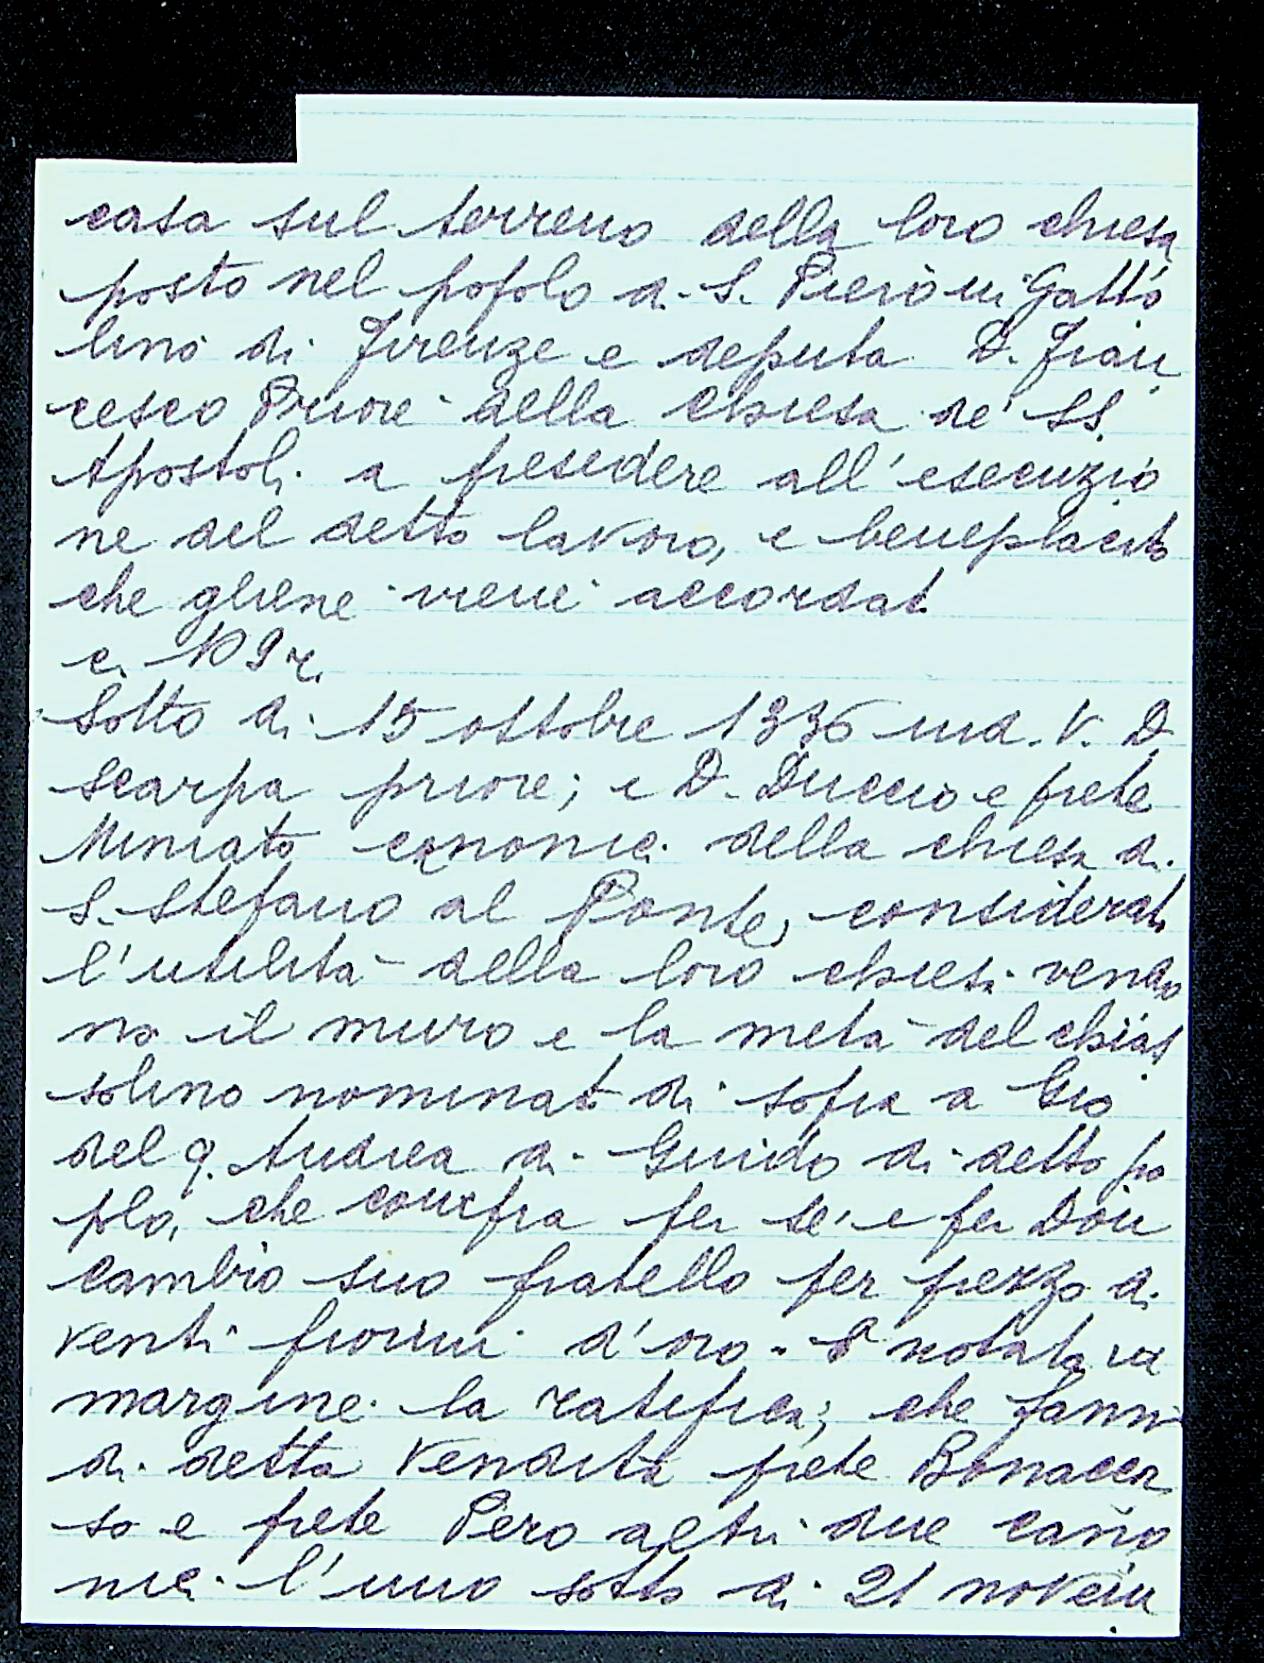 casa sul terreno della loro chiesa
posto nel popolo di S. Piero in Gatto
lino di Firenze e deputa D. Fran
cesco Priore della Chiesa de' SS.
Apostoli a presedere all'esecuzio
ne del detto lavoro, e beneplacito
che gliene viene accordat
c. 109 r.
Sotto di 15 ottobre 1336 ind. V. D.
Scarpa priore; e D. Duccio e prete
Miniato canonici della chiesa di
S. Stefano al Ponte, considerata
l'utilità della loro chiesa vendo
no il muro e la metà del chias
solino nominato di sopra a Gio
del q. Andrea di Guido di detto po
polo, che compra per sè e per Don
Cambio suo fratello per prezzo di
venti fiorini d'oro. È notata in
margine la ratifica, che fanno
di detta vendita prete Bonaccor
so e prete Pero altri due cano
nici l'uno sotto di 21 novem